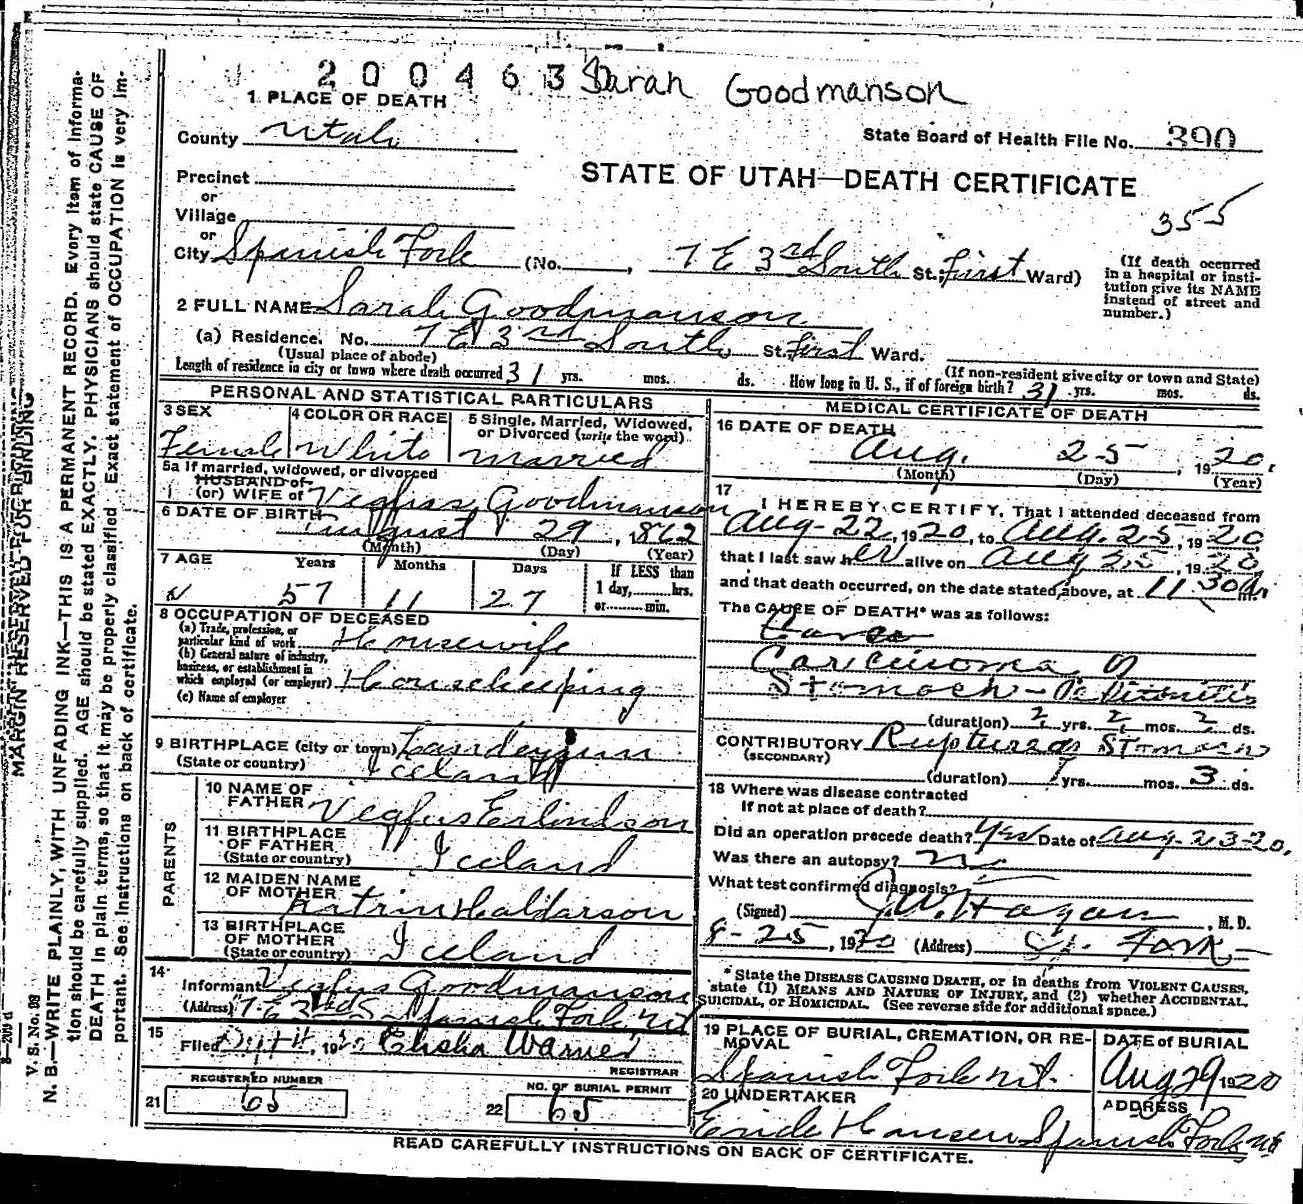 200463 Sarah Goodmanson
1 PLACE OF DEATH
County Utah
State Board of Health File No. 390
Precinct
or
STATE OF UTAH—DEATH CERTIFICATE
355
Village
or
City Spanish Fork (No. , 7 E 3rd South St.; First Ward)
(If death occurred
in a hospital or insti-
tution give its NAME
instead of street and
number.)
2 FULL NAME Sarah Goodmanson
(a) Residence. No. 7 E 3rd South St. First Ward.
(Usual place of abode)
(If non-resident give city or town and State)
Length of residence in city or town where death occurred 31 yrs. mos. ds. How long in U. S., if of foreign birth? 31 yrs. mos. ds.
PERSONAL AND STATISTICAL PARTICULARS
3 SEX
Female
4 COLOR OR RACE
White
5 Single, Married, Widowed,
or Divorced (write the word)
Married
5a If married, widowed, or divorced
HUSBAND of
(or) WIFE of Vegfus Goodmanson
6 DATE OF BIRTH August 29, 1862
(Month) (Day) (Year)
7 AGE Years Months Days
57 11 27
If LESS than
1 day, hrs.
or min.
8 OCCUPATION OF DECEASED
(a) Trade, profession, or
particular kind of work Housewife
(b) General nature of industry,
business, or establishment in
which employed (or employer) Housekeeping
(c) Name of employer
9 BIRTHPLACE (city or town)
(State or country) Iceland
PARENTS
10 NAME OF
FATHER Vegfus Erlindson
11 BIRTHPLACE
OF FATHER
(State or country) Iceland
12 MAIDEN NAME
OF MOTHER Katrin Haldarson
13 BIRTHPLACE
OF MOTHER
(State or country) Iceland
14
Informant Vegfus Goodmanson
(Address) 7 E 3rd S. Spanish Fork Ut
15
Filed Sept 4, 1920 Elisha Warner
REGISTRAR
REGISTERED NUMBER
21 65
NO. OF BURIAL PERMIT
22 65
MEDICAL CERTIFICATE OF DEATH
16 DATE OF DEATH
Aug. 25, 1920.
(Month) (Day) (Year)
17
I HEREBY CERTIFY, That I attended deceased from
Aug-22, 1920, to Aug. 25, 1920
that I last saw her alive on Aug 25, 1920,
and that death occurred, on the date stated above, at 11 30 m.
The CAUSE OF DEATH* was as follows:
Carcinoma of
Stomach - Peritonitis
(duration) 2 yrs. 2 mos. 2 ds.
CONTRIBUTORY Rupture of Stomach
(SECONDARY)
(duration) yrs. mos. 3 ds.
18 Where was disease contracted
If not at place of death?
Did an operation precede death? Yes Date of Aug-23-20.
Was there an autopsy? No
What test confirmed diagnosis?
(Signed) J.W. Hagan, M. D.
8-25, 1920 (Address) Sp. Fork
* State the DISEASE CAUSING DEATH, or in deaths from VIOLENT CAUSES,
state (1) MEANS AND NATURE OF INJURY, and (2) whether ACCIDENTAL,
SUICIDAL, or HOMICIDAL. (See reverse side for additional space.)
19 PLACE OF BURIAL, CREMATION, OR RE-
MOVAL
Spanish Fork Ut.
DATE of BURIAL
Aug 29 1920
20 UNDERTAKER
Hansen
ADDRESS
Spanish Fork Ut
READ CAREFULLY INSTRUCTIONS ON BACK OF CERTIFICATE.
MARGIN RESERVED FOR BINDING
V. S. No. 98
N. B.—WRITE PLAINLY, WITH UNFADING INK—THIS IS A PERMANENT RECORD. Every item of informa-
tion should be carefully supplied. AGE should be stated EXACTLY. PHYSICIANS should state CAUSE OF
DEATH in plain terms, so that it may be properly classified. Exact statement of OCCUPATION is very im-
portant. See instructions on back of certificate.